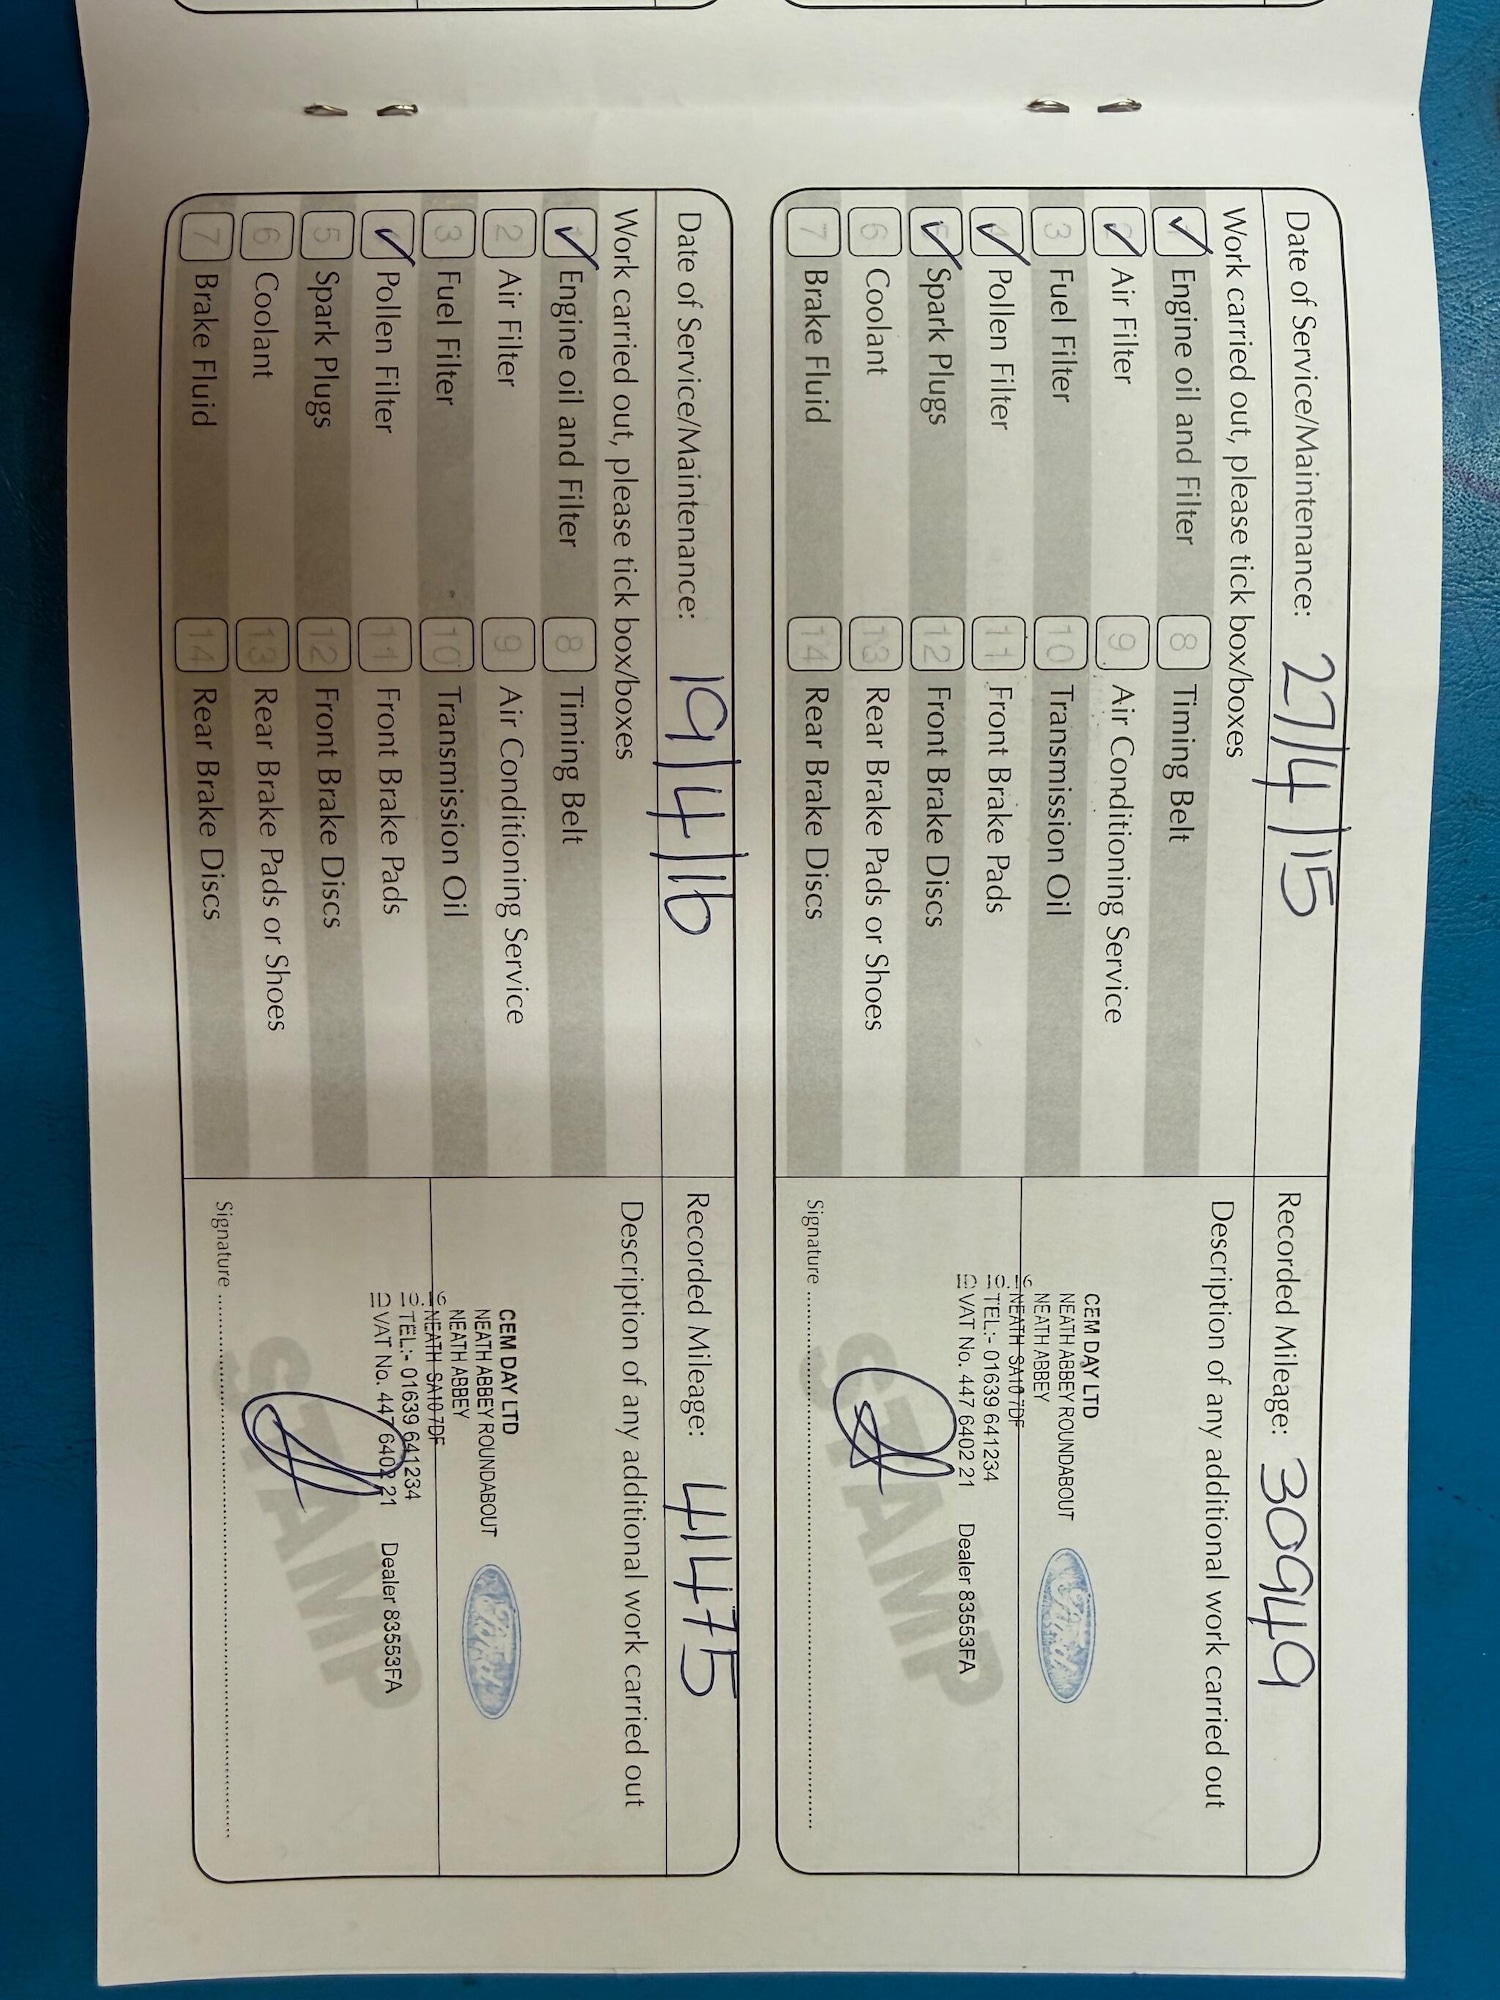 Date of Service/Maintenance: 27/4/15 Recorded Mileage: 30949
Work carried out, please tick box/boxes
Description of any additional work carried out
✓ Engine oil and Filter 8 Timing Belt
✓ Air Filter 9 Air Conditioning Service
3 Fuel Filter 10 Transmission Oil
✓ Pollen Filter 11 Front Brake Pads
✓ Spark Plugs 12 Front Brake Discs
6 Coolant 13 Rear Brake Pads or Shoes
7 Brake Fluid 14 Rear Brake Discs
CEM DAY LTD
NEATH ABBEY ROUNDABOUT
NEATH ABBEY
NEATH SA10 7DF
TEL:- 01639 641234
VAT No. 447 6402 21 Dealer 83553FA
Ford
STAMP
Signature
Date of Service/Maintenance: 19/4/16 Recorded Mileage: 41475
Work carried out, please tick box/boxes
Description of any additional work carried out
✓ Engine oil and Filter 8 Timing Belt
2 Air Filter 9 Air Conditioning Service
3 Fuel Filter 10 Transmission Oil
✓ Pollen Filter 11 Front Brake Pads
5 Spark Plugs 12 Front Brake Discs
6 Coolant 13 Rear Brake Pads or Shoes
7 Brake Fluid 14 Rear Brake Discs
CEM DAY LTD
NEATH ABBEY ROUNDABOUT
NEATH ABBEY
NEATH SA10 7DF
TEL:- 01639 641234
VAT No. 447 6402 21 Dealer 83553FA
Ford
STAMP
Signature